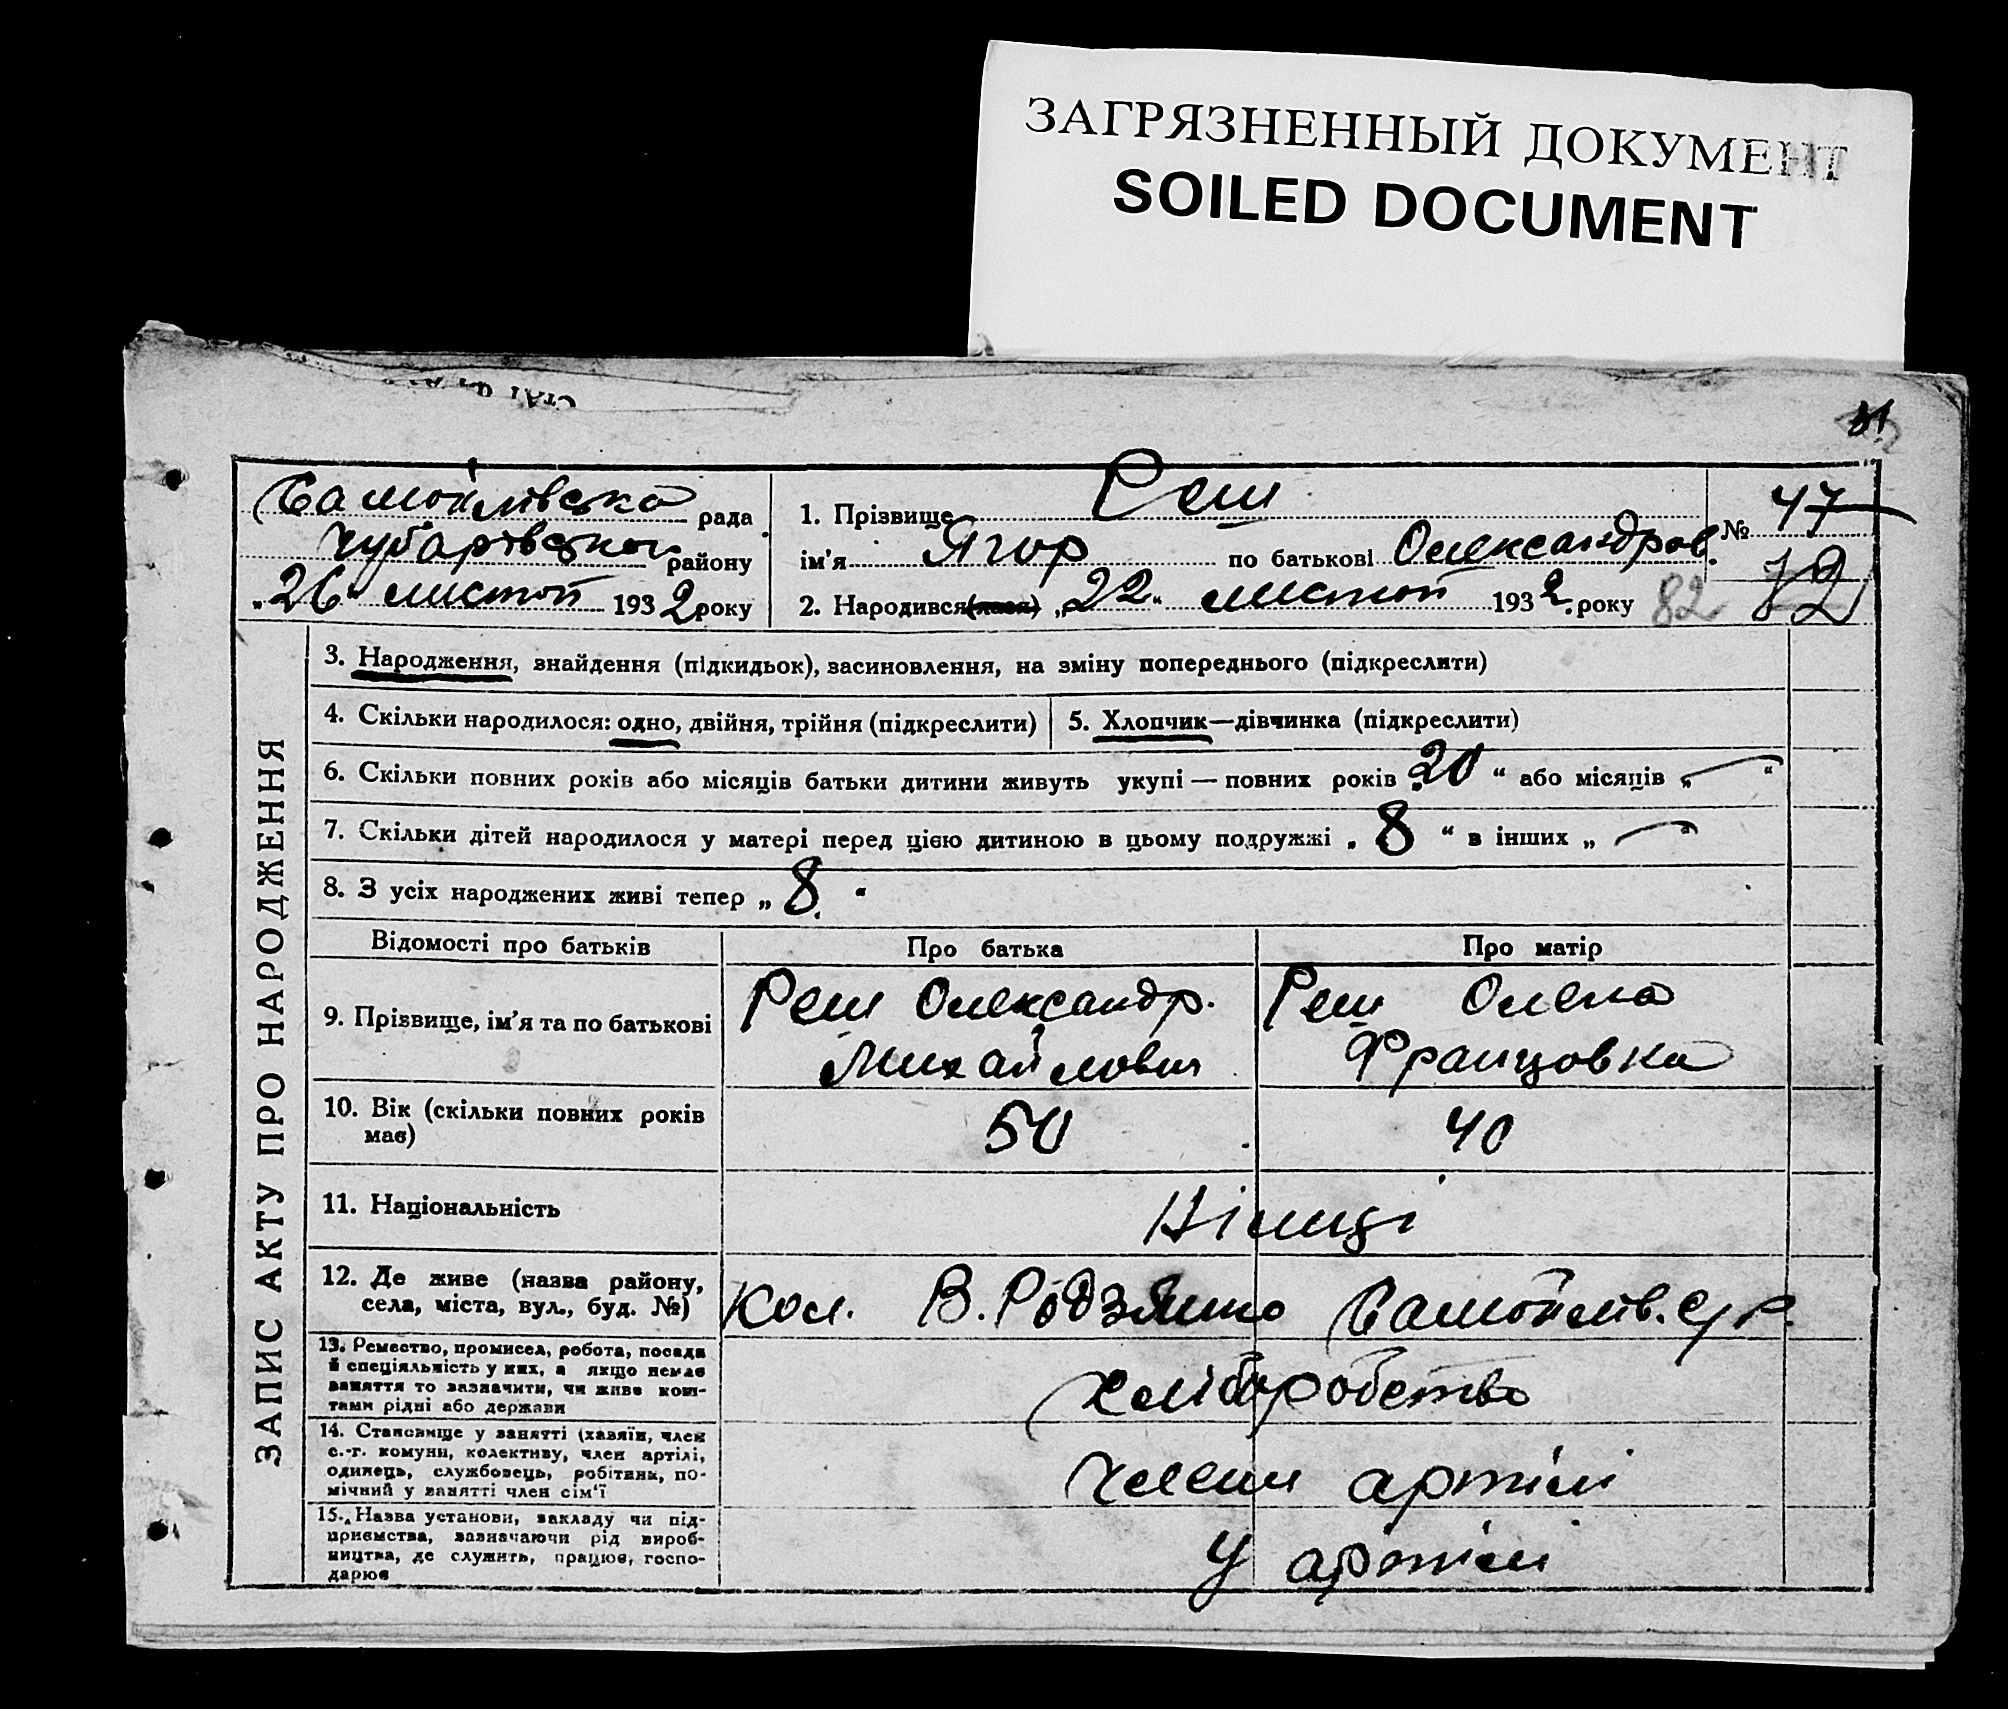 ЗАГРЯЗНЕННЫЙ ДОКУМЕНТ
SOILED DOCUMENT
81
Самойлівська рада
Чубарівськог району
„26“ листоп 1932 року
1. Прізвище Реш
ім'я Ягор по батькові Олександров.
2. Народився(лася) „22“ листоп 1932. року
№ 47
82 72
ЗАПИС АКТУ ПРО НАРОДЖЕННЯ
3. Народження, знайдення (підкидьок), засиновлення, на зміну попереднього (підкреслити)
4. Скільки народилося: одно, двійня, трійня (підкреслити)
5. Хлопчик—дівчинка (підкреслити)
6. Скільки повних років або місяців батьки дитини живуть укупі — повних років „20“ або місяців „—“
7. Скільки дітей народилося у матері перед цією дитиною в цьому подружжі „8“ в інших „—“
8. З усіх народжених живі тепер „8.“
Відомості про батьків Про батька Про матір
9. Прізвище, ім'я та по батькові
Реш Олександр.
Михайлович
Реш Олена
Францовна
10. Вік (скільки повних років має)
50 40
11. Національність
Німці
12. Де живе (назва району,
села, міста, вул., буд. №)
Кол. В. Родзянко Самойлів. с/р.
13. Ремество, промисел, робота, посада
й спеціяльність у них, а якщо немає
заняття то зазначити, чи живе кош-
тами рідні або держави
хліборобство
14. Становище у занятті (хазяїн, член
с.-г. комуни, колективу, член артілі,
одинець, службовець, робітник, по-
мічний у занятті член сім'ї
члени артілі
15. Назва установи, закладу чи під-
приємства, зазначаючи рід вироб-
ництва, де служить, працює, госпо-
дарює
у артілі